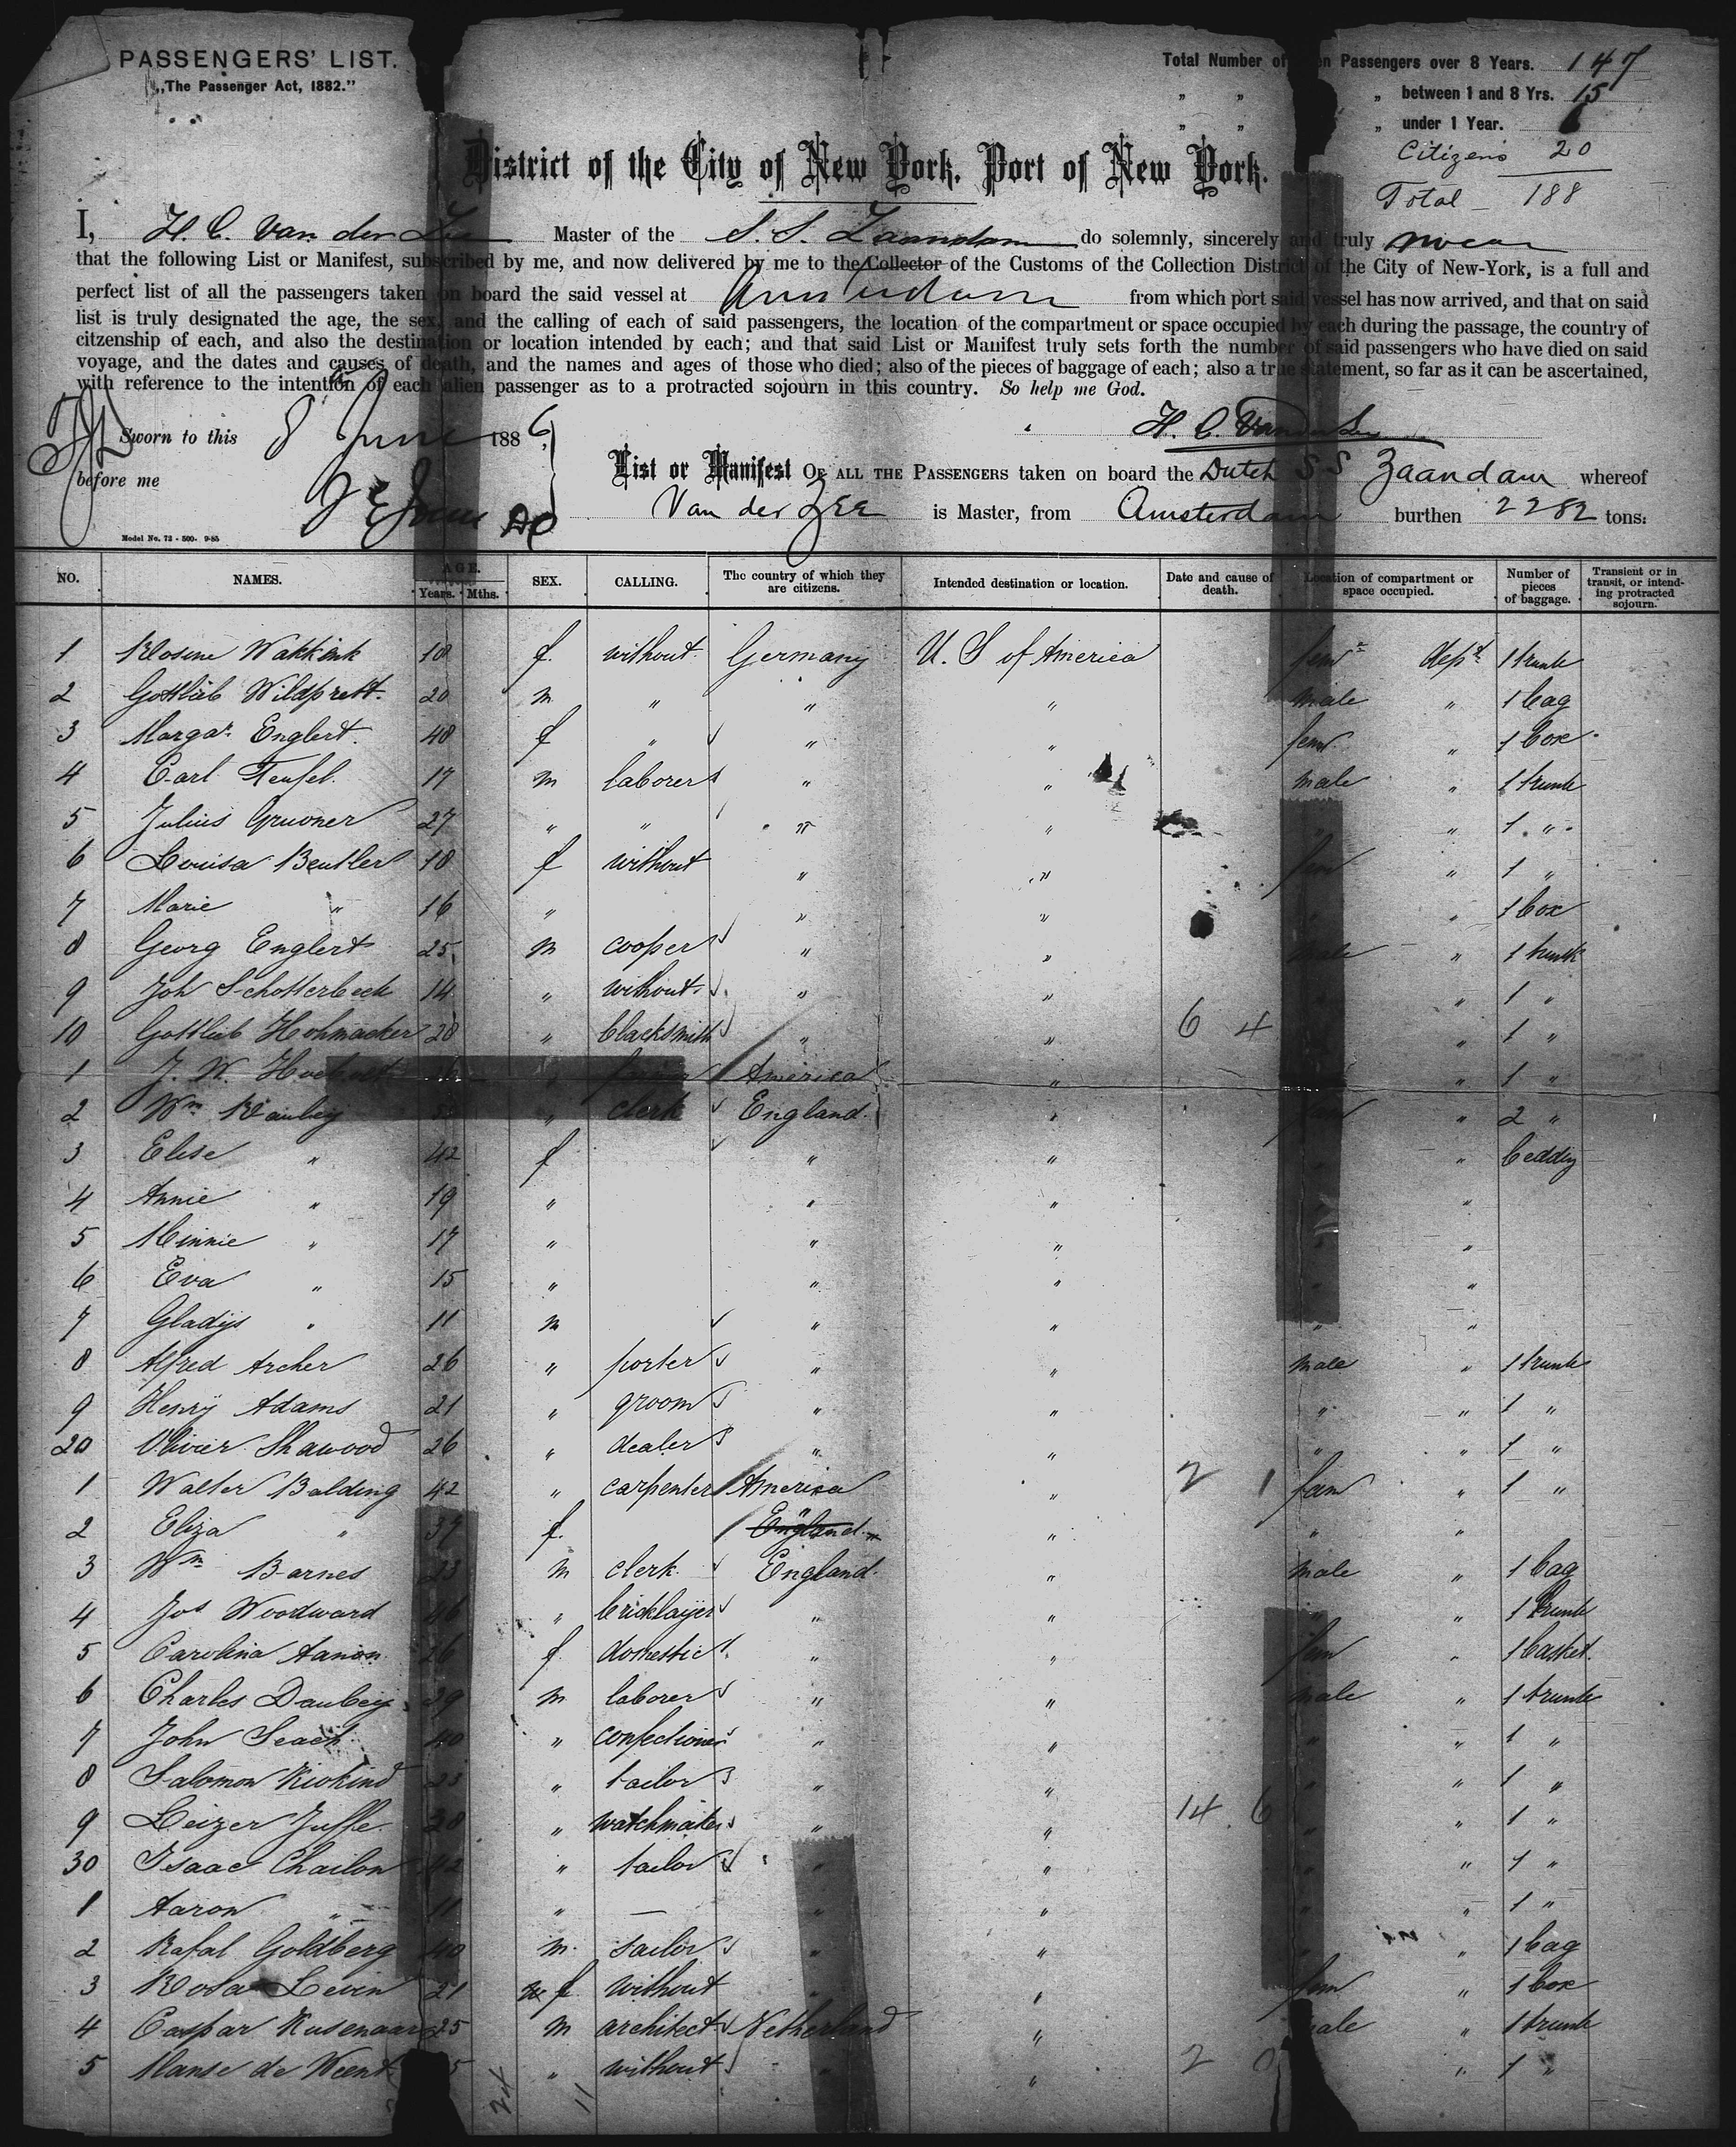 PASSENGERS' LIST.
„The Passenger Act, 1882."
Total Number of en Passengers over 8 Years. 147
„ „ „ between 1 and 8 Yrs. 15
„ „ „ under 1 Year. 6
Citizens 20
Total - 188
District of the City of New York, Port of New York.
I, H. C. Van der Zee Master of the S. S. Zaandam do solemnly, sincerely and truly swear
that the following List or Manifest, subscribed by me, and now delivered by me to the Collector of the Customs of the Collection District of the City of New-York, is a full and
perfect list of all the passengers taken on board the said vessel at Amsterdam from which port said vessel has now arrived, and that on said
list is truly designated the age, the sex, and the calling of each of said passengers, the location of the compartment or space occupied by each during the passage, the country of
citzenship of each, and also the destination or location intended by each; and that said List or Manifest truly sets forth the number of said passengers who have died on said
voyage, and the dates and causes of death, and the names and ages of those who died; also of the pieces of baggage of each; also a true statement, so far as it can be ascertained,
with reference to the intention of each alien passenger as to a protracted sojourn in this country. So help me God.
Sworn to this 8 June 1886, H. C. Van der Zee
before me
List or Manifest OF ALL THE PASSENGERS taken on board the Dutch SS Zaandam whereof
Van der Zee is Master, from Amsterdam burthen 2282 tons.
Model No. 72 - 500- 9-85
NO. NAMES. AGE. Years. Mths. SEX. CALLING. The country of which they are citizens. Intended destination or location. Date and cause of death. Location of compartment or space occupied. Number of pieces of baggage. Transient or in transit, or intending protracted sojourn.
1 Rosine Wakkink 18 f. without Germany U. S of America fem dept 1 trunk
2 Gottlieb Wildprett. 20 m „ „ „ male „ 1 bag
3 Margar. Englert. 48 f „ „ „ fem. „ 1 box
4 Carl Teufel. 17 m laborer „ „ male „ 1 trunk
5 Julius Gruoner 27 „ „ „ „ „ „ 1 „
6 Louisa Beutler 18 f without „ „ fem „ 1 „
7 Marie „ 16 „ „ „ „ „ 1 box
8 Georg Englert 25 m cooper „ „ male „ 1 trunk
9 Joh Schotterbeck 14 „ without „ „ „ 1 „
10 Gottlieb Hohmacker 28 „ blacksmith „ „ 6 4 „ 1 „
1 J. W. „ America „ „ 1 „
2 Wm „ clerk England „ fam „ 2 „
3 Elise „ 42 f „ „ „ „ bedding
4 Annie „ 19 „ „ „ „ „
5 Minnie „ 17 „ „ „ „ „
6 Eva „ 15 „ „ „ „ „
7 Gladys „ 11 m „ „ „ „
8 Alfred Archer 26 „ porter „ „ male „ 1 trunk
9 Henry Adams 21 „ groom „ „ „ „ 1 „
20 Olivier Shawood 26 „ dealer „ „ „ „ 1 „
1 Walter Balding 42 „ carpenter America „ 2 1 fam „ 1 „
2 Eliza „ 37 f. England „ „ „ „
3 Wm Barnes 23 m clerk England „ male „ 1 bag
4 Jos Woodward 46 „ bricklayer „ „ „ „ 1 trunk
5 Carolina 26 f domestic „ „ fem „ 1 basket.
6 Charles Daubey 39 m laborer „ „ male „ 1 trunk
7 John Seach 40 „ confectioner „ „ „ „ 1 „
8 Salomon 23 „ tailor „ „ „ „ 1 „
9 Leizer Juffe 38 „ watchmaker „ „ 14 6 „ „ 1 „
30 Isaac Chailon 42 „ tailor „ „ „ „ 1 „
1 Aaron „ 11 „ — „ „ „ „ 1 „
2 Rafal Goldberg 40 m. sailor „ „ „ „ 1 bag
3 Rosa Levin 21 f without „ „ fem „ 1 box
4 Caspar 25 m architect Netherland „ male „ 1 trunk
5 Manse de Weent 5 „ without „ „ 2 0 „ „ 1 „
11